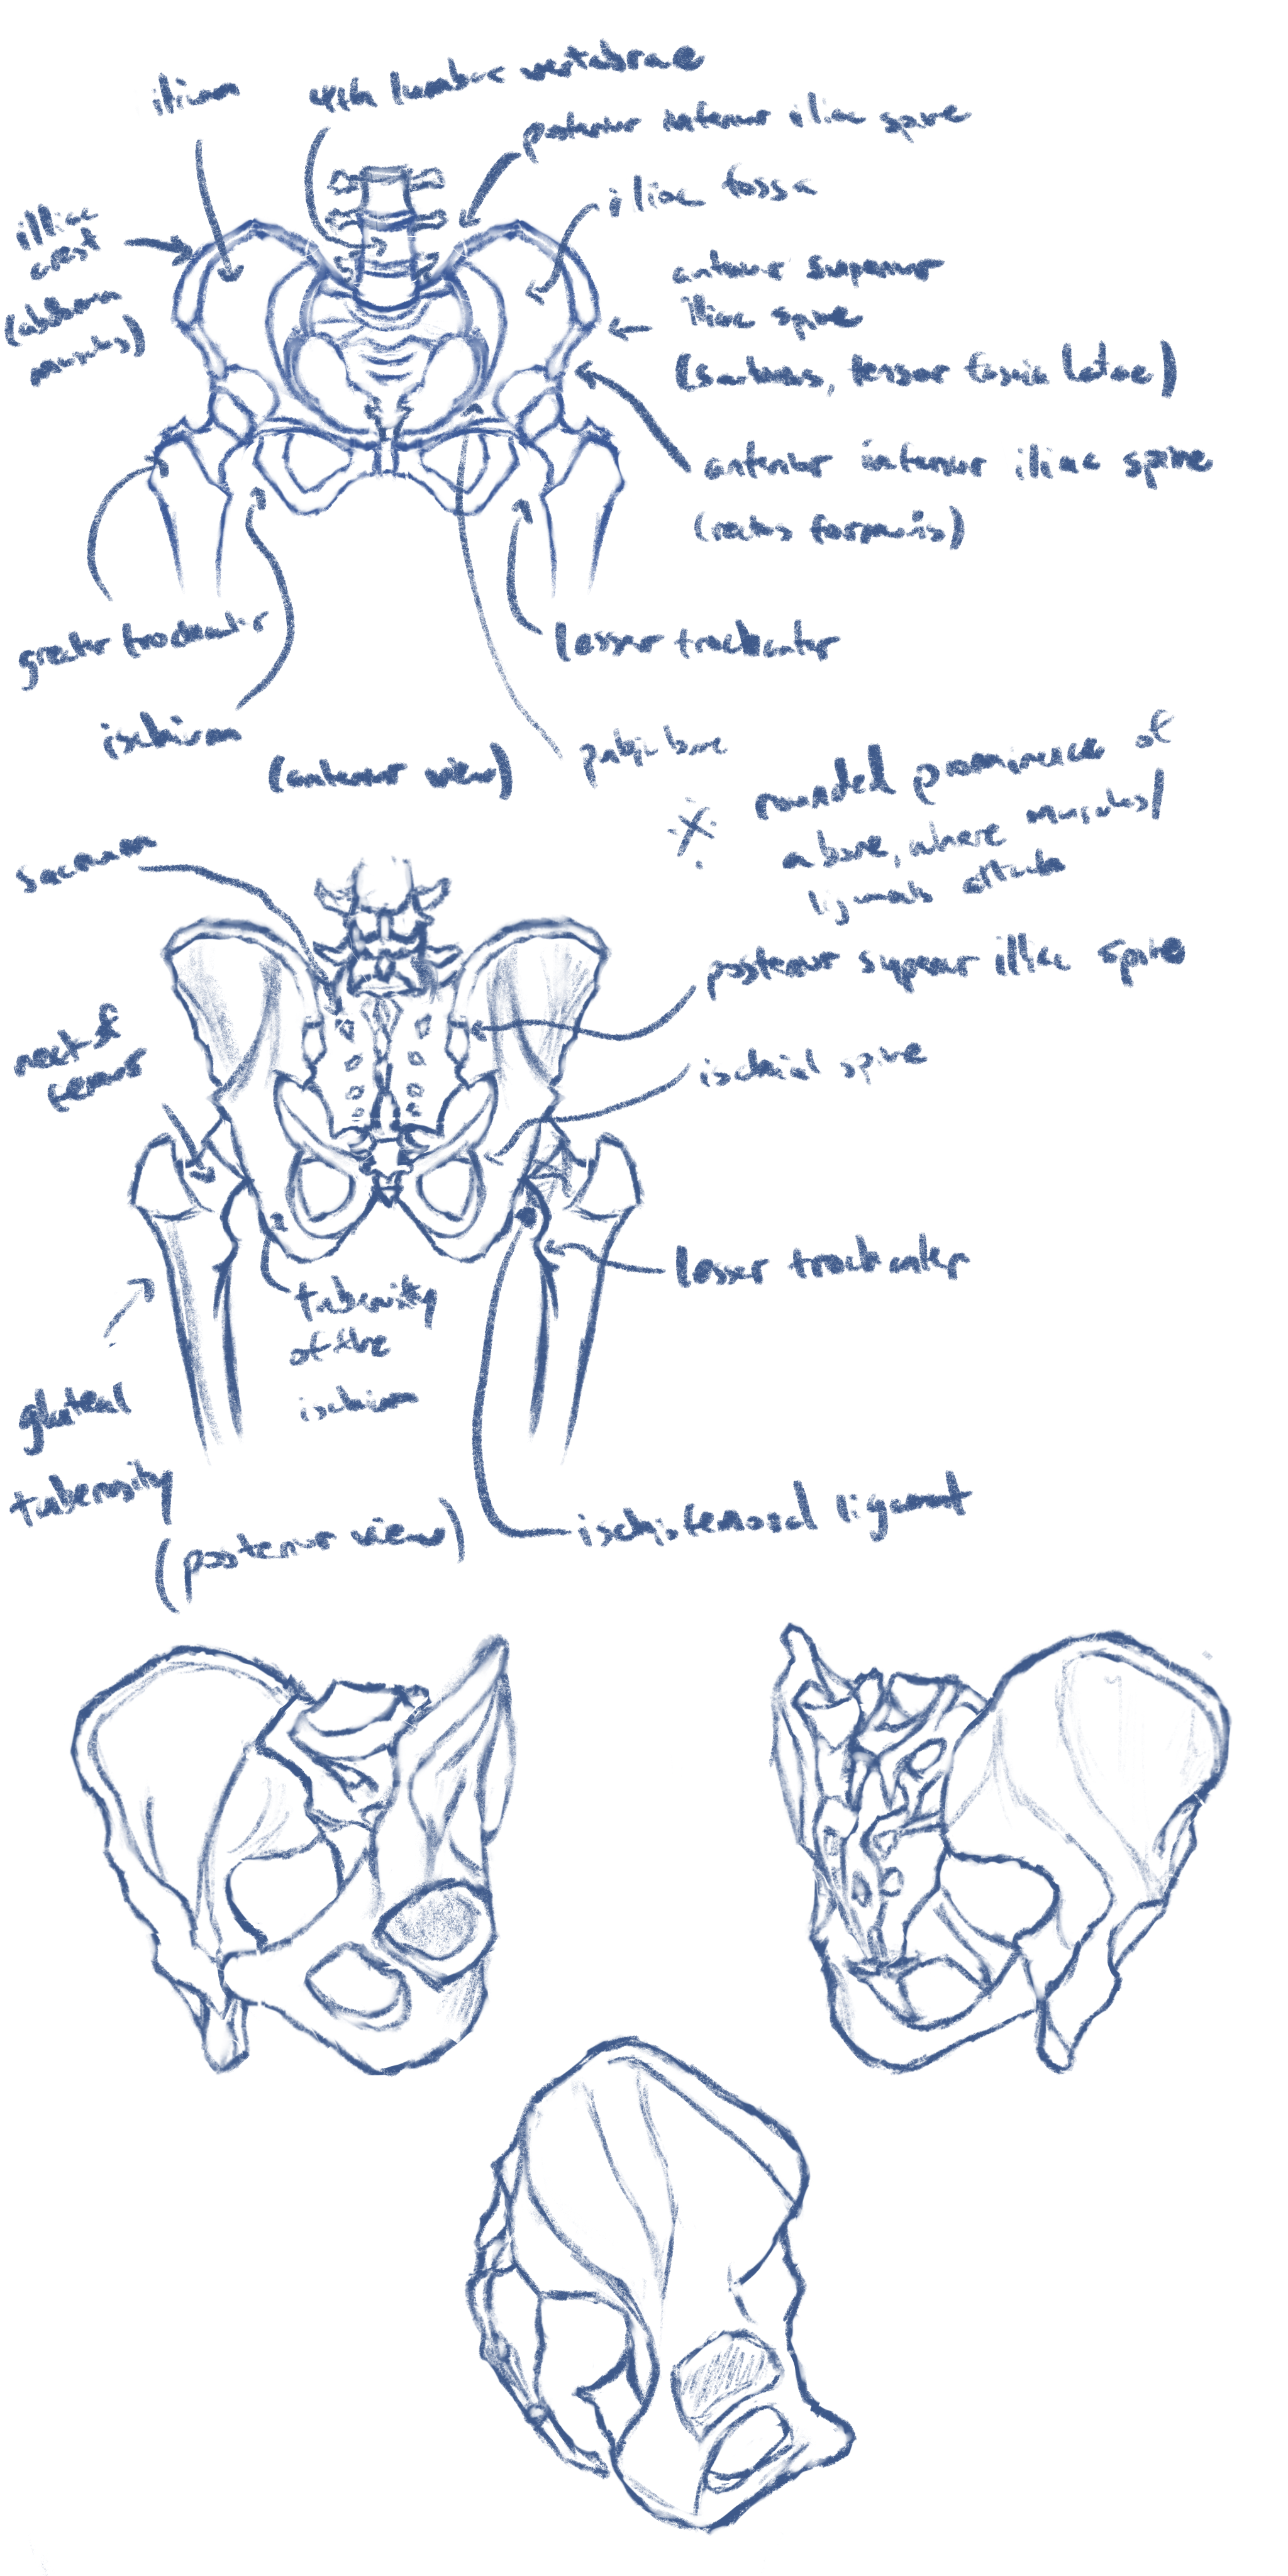 ilium
4th lumbar vertabrae
posterior inferior iliac spine
iliac fossa
illiac
crest
(abdomen
muscles)
anterior superior
iliac spine
(sartorius, tensor fascia latae)
anterior inferior iliac spine
(rectus formoris)
greater trochanter
lesser trochanter
ischium
(anterior view)
pubic bone
rounded prominence of
a bone, where muscles/
ligaments attach
sacrum
posterior superior illiac spine
neck of
femur
ischial spine
lesser trochanter
tuberosity
of the
ischium
gluteal
tuberosity
(posterior view)
ischiofemoral ligament